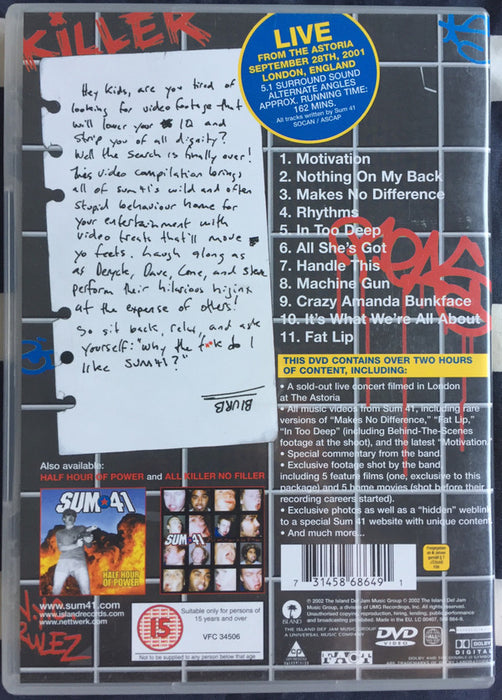 KILLER
LIVE
FROM THE ASTORIA
SEPTEMBER 28TH, 2001
LONDON, ENGLAND
5.1 SURROUND SOUND
ALTERNATE ANGLES
APPROX. RUNNING TIME:
162 MINS.
All tracks written by Sum 41
SOCAN / ASCAP
Hey kids, are you tired of
looking for video footage that
will lower your IQ and
strip you of all dignity?
Well the search is finally over!
This video compilation brings
all of sum 41's wild and often
stupid behaviour home for
your entertainment with
video treats that'll move
yo feets. Laugh along as
as Deryck, Dave, Cone, and Steve
perform their hilarious hijinx
at the expense of others!
So sit back, relax, and ask
yourself: "Why the f*ck do I
like SUM41?"
BLURB
1. Motivation
2. Nothing On My Back
3. Makes No Difference
4. Rhythms
5. In Too Deep
6. All She's Got
7. Handle This
8. Machine Gun
9. Crazy Amanda Bunkface
10. It's What We're All About
11. Fat Lip
THIS DVD CONTAINS OVER TWO HOURS
OF CONTENT, INCLUDING:
• A sold-out live concert filmed in London
at The Astoria
• All music videos from Sum 41, including rare
versions of "Makes No Difference," "Fat Lip,"
"In Too Deep" (including Behind-The-Scenes
footage at the shoot), and the latest "Motivation
• Special commentary from the band
• Exclusive footage shot by the band
including 5 feature films (one, exclusive to this
package) and 5 home movies (shot before their
recording careers started).
• Exclusive photos as well as a "hidden" weblink
to a special Sum 41 website with unique content
• And much more...
Also available:
HALF HOUR OF POWER and ALL KILLER NO FILLER
SUM 41
HALF HOUR
OF POWER
SUM 41
www.sum41.com
www.islandrecords.com
www.nettwerk.com
15
Suitable only for persons of
15 years and over
VFC 34506
Not to be supplied to any person below that age
7 31458 68649 1
ISLAND
© 2002 The Island Def Jam Music Group © 2002 The Island Def Jam
Music Group, a division of UMG Recordings, Inc. All rights reserved.
Unauthorized copying, reproduction, hiring, lending, public performance
and broadcasting prohibited. Made in the EU.
THE ISLAND DEF JAM MUSIC GROUP
A UNIVERSAL MUSIC COMPANY
FACT
DVD
VIDEO
DOLBY
DIGITAL